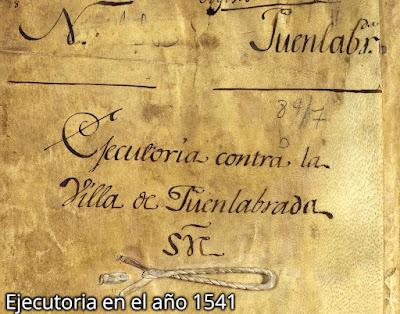 N.
Fuenlabr.da
89/7
Executoria contra la
Villa de Fuenlabrada
Ejecutoria en el año 1541